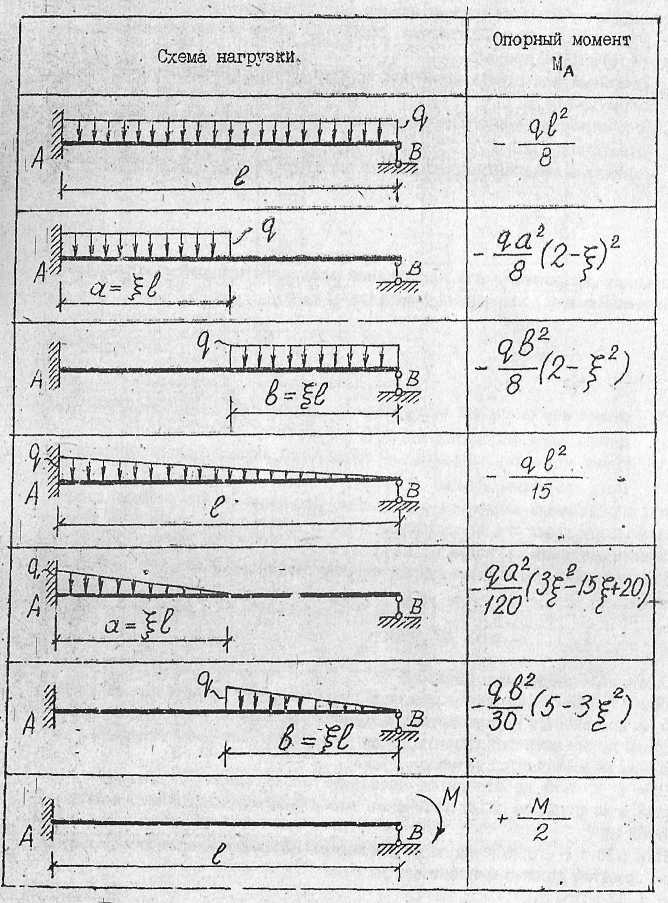 Схема нагрузки.
Опорный момент
M_A
A q B
l
- ql²/8
A q B
a = ξl
- qa²/8 (2-ξ)²
A q B
b = ξl
- qb²/8 (2-ξ²)
q A B
l
ql²/15
q A B
a = ξl
- qa²/120 (3ξ²-15ξ+20)
A q B
b = ξl
- qb²/30 (5-3ξ²)
A B M
l
+ M/2